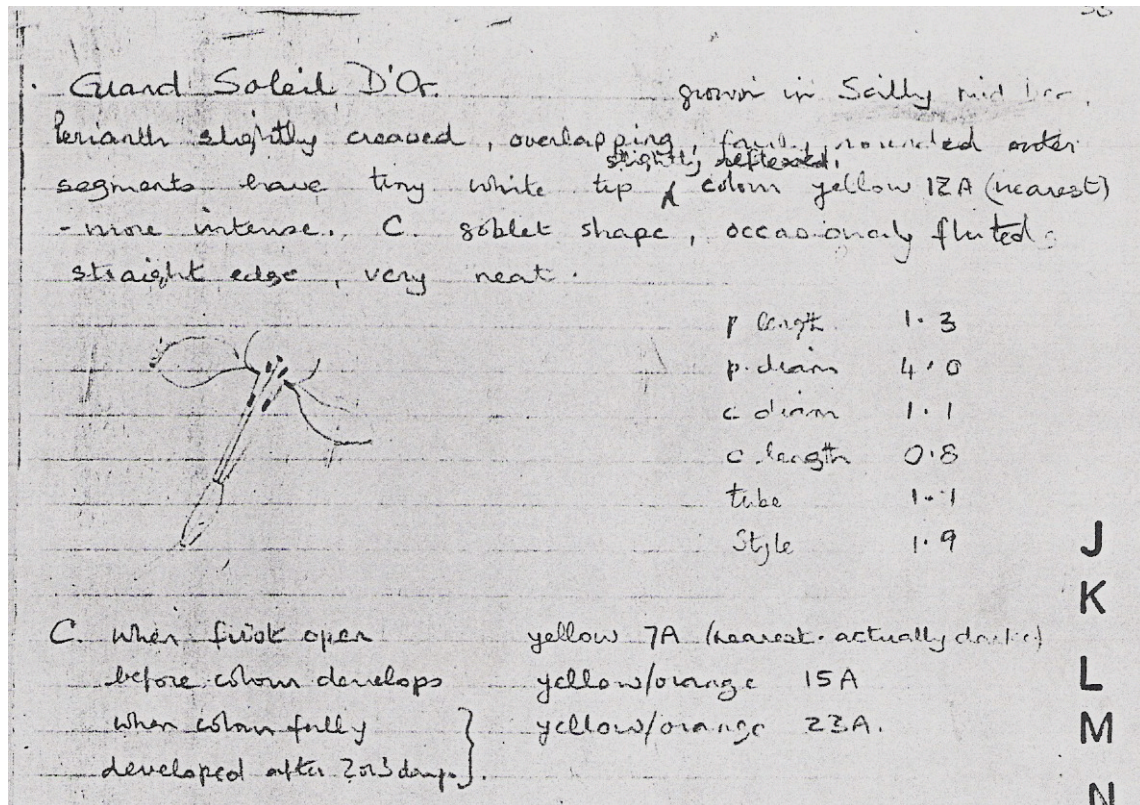 Grand Soleil D'Or. grown in Scilly mid Dec.
Perianth slightly creased, overlapping, fairly rounded outer
slightly reflexed,
segments have tiny white tip colour yellow 12A (nearest)
- more intense. C. goblet shape, occasionally fluted
straight edge, very neat.
p length 1.3
p. diam 4.0
c diam 1.1
c. length 0.8
tube 1.1
Style 1.9
J
K
C. when first open yellow 7A (nearest. actually darker)
before colour develops yellow/orange 15A
L
when colour fully yellow/orange 23A.
M
developed after 2 or 3 days.
N